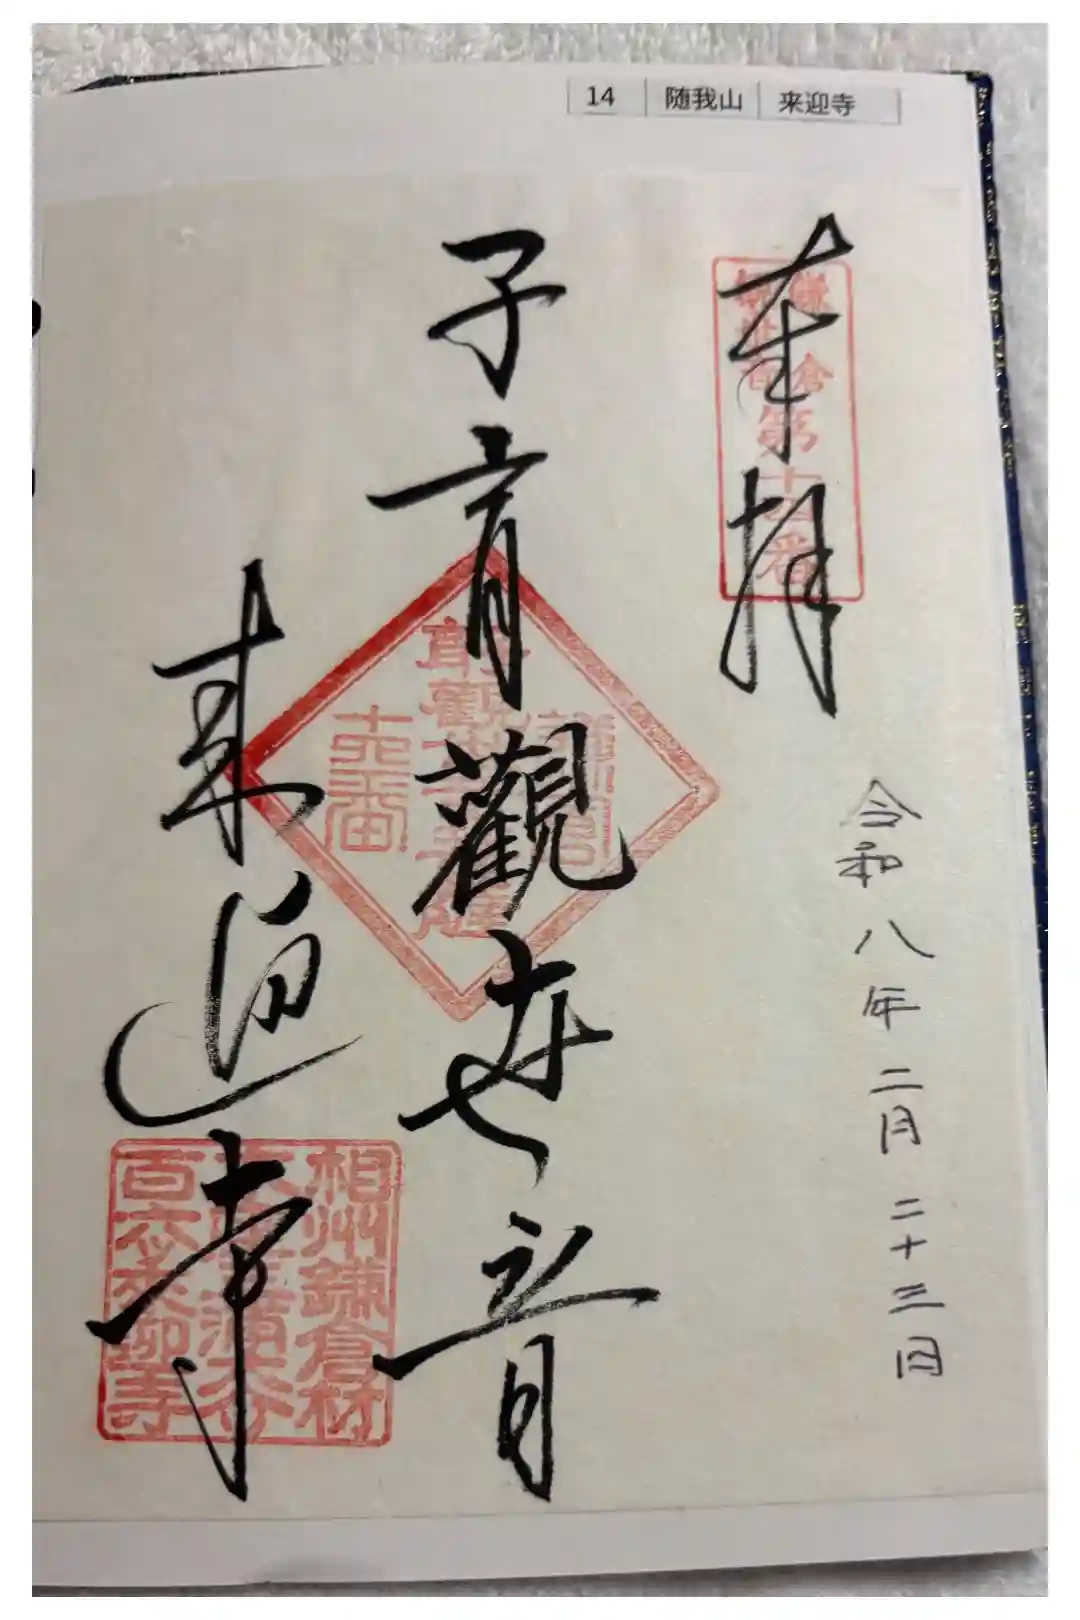 14 随我山 来迎寺
奉拝
鎌倉
第十四番
令和八年二月二十三日
子育觀世音
十四番
来迎寺
相州鎌倉材
百衣来迎寺